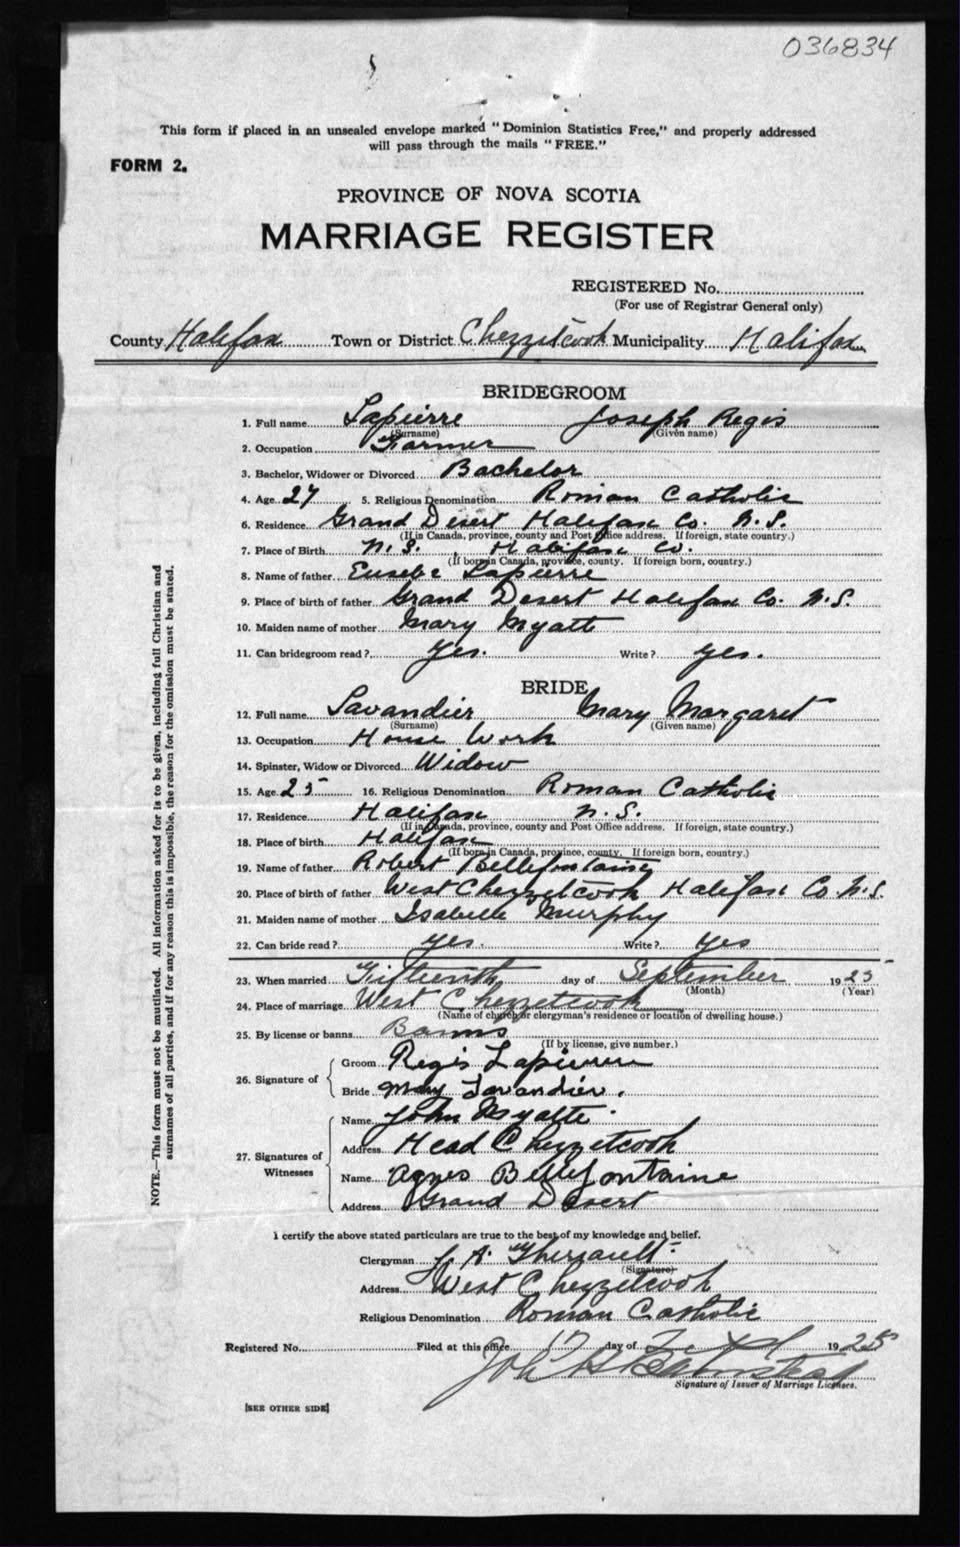 036834
This form if placed in an unsealed envelope marked "Dominion Statistics Free," and properly addressed
will pass through the mails "FREE."
FORM 2.
PROVINCE OF NOVA SCOTIA
MARRIAGE REGISTER
REGISTERED No.
(For use of Registrar General only)
County Halifax Town or District Chezzetcook Municipality Halifax
BRIDEGROOM
1. Full name Lapierre Joseph Regis
(Surname) (Given name)
2. Occupation Farmer
3. Bachelor, Widower or Divorced Bachelor
4. Age 27 5. Religious Denomination Roman Catholic
6. Residence Grand Desert Halifax Co. N.S.
(If in Canada, province, county and Post Office address. If foreign, state country.)
7. Place of Birth N.S., Halifax Co.
(If born in Canada, province, county. If foreign born, country.)
8. Name of father Eusebe Lapierre
9. Place of birth of father Grand Desert Halifax Co. N.S.
10. Maiden name of mother Mary Myatt
11. Can bridegroom read? Yes. Write? yes.
BRIDE
12. Full name Lavandier Mary Margaret
(Surname) (Given name)
13. Occupation House Work
14. Spinster, Widow or Divorced Widow
15. Age 25 16. Religious Denomination Roman Catholic
17. Residence Halifax N.S.
(If in Canada, province, county and Post Office address. If foreign, state country.)
18. Place of birth Halifax
(If born in Canada, province, county. If foreign born, country.)
19. Name of father Robert Bellefontaine
20. Place of birth of father West Chezzetcook Halifax Co. N.S.
21. Maiden name of mother Isabelle Murphy
22. Can bride read? yes. Write? yes
23. When married Fifteenth day of September 1925
(Month) (Year)
24. Place of marriage West Chezzetcook
(Name of church or clergyman's residence or location of dwelling house.)
25. By license or banns Banns
(If by license, give number.)
26. Signature of
Groom Regis Lapierre
Bride Mary Lavandier.
27. Signatures of Witnesses
Name John Myatte
Address Head Chezzetcook
Name Agnes Bellefontaine
Address Grand Desert
I certify the above stated particulars are true to the best of my knowledge and belief.
Clergyman A. Theriault
(Signature)
Address West Chezzetcook
Religious Denomination Roman Catholic
Registered No. Filed at this office 17 day of Sept 1925
Signature of Issuer of Marriage Licenses.
[SEE OTHER SIDE]
NOTE.—This form must not be mutilated. All information asked for is to be given, including full Christian and
surnames of all parties, and if for any reason this is impossible, the reason for the omission must be stated.